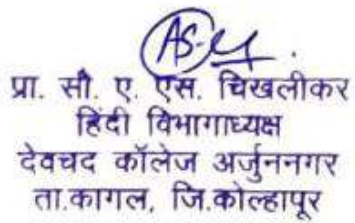 प्रा. सौ. ए. एस. चिखलीकर
हिंदी विभागाध्यक्ष
देवचद कॉलेज अर्जुननगर
ता.कागल, जि.कोल्हापूर